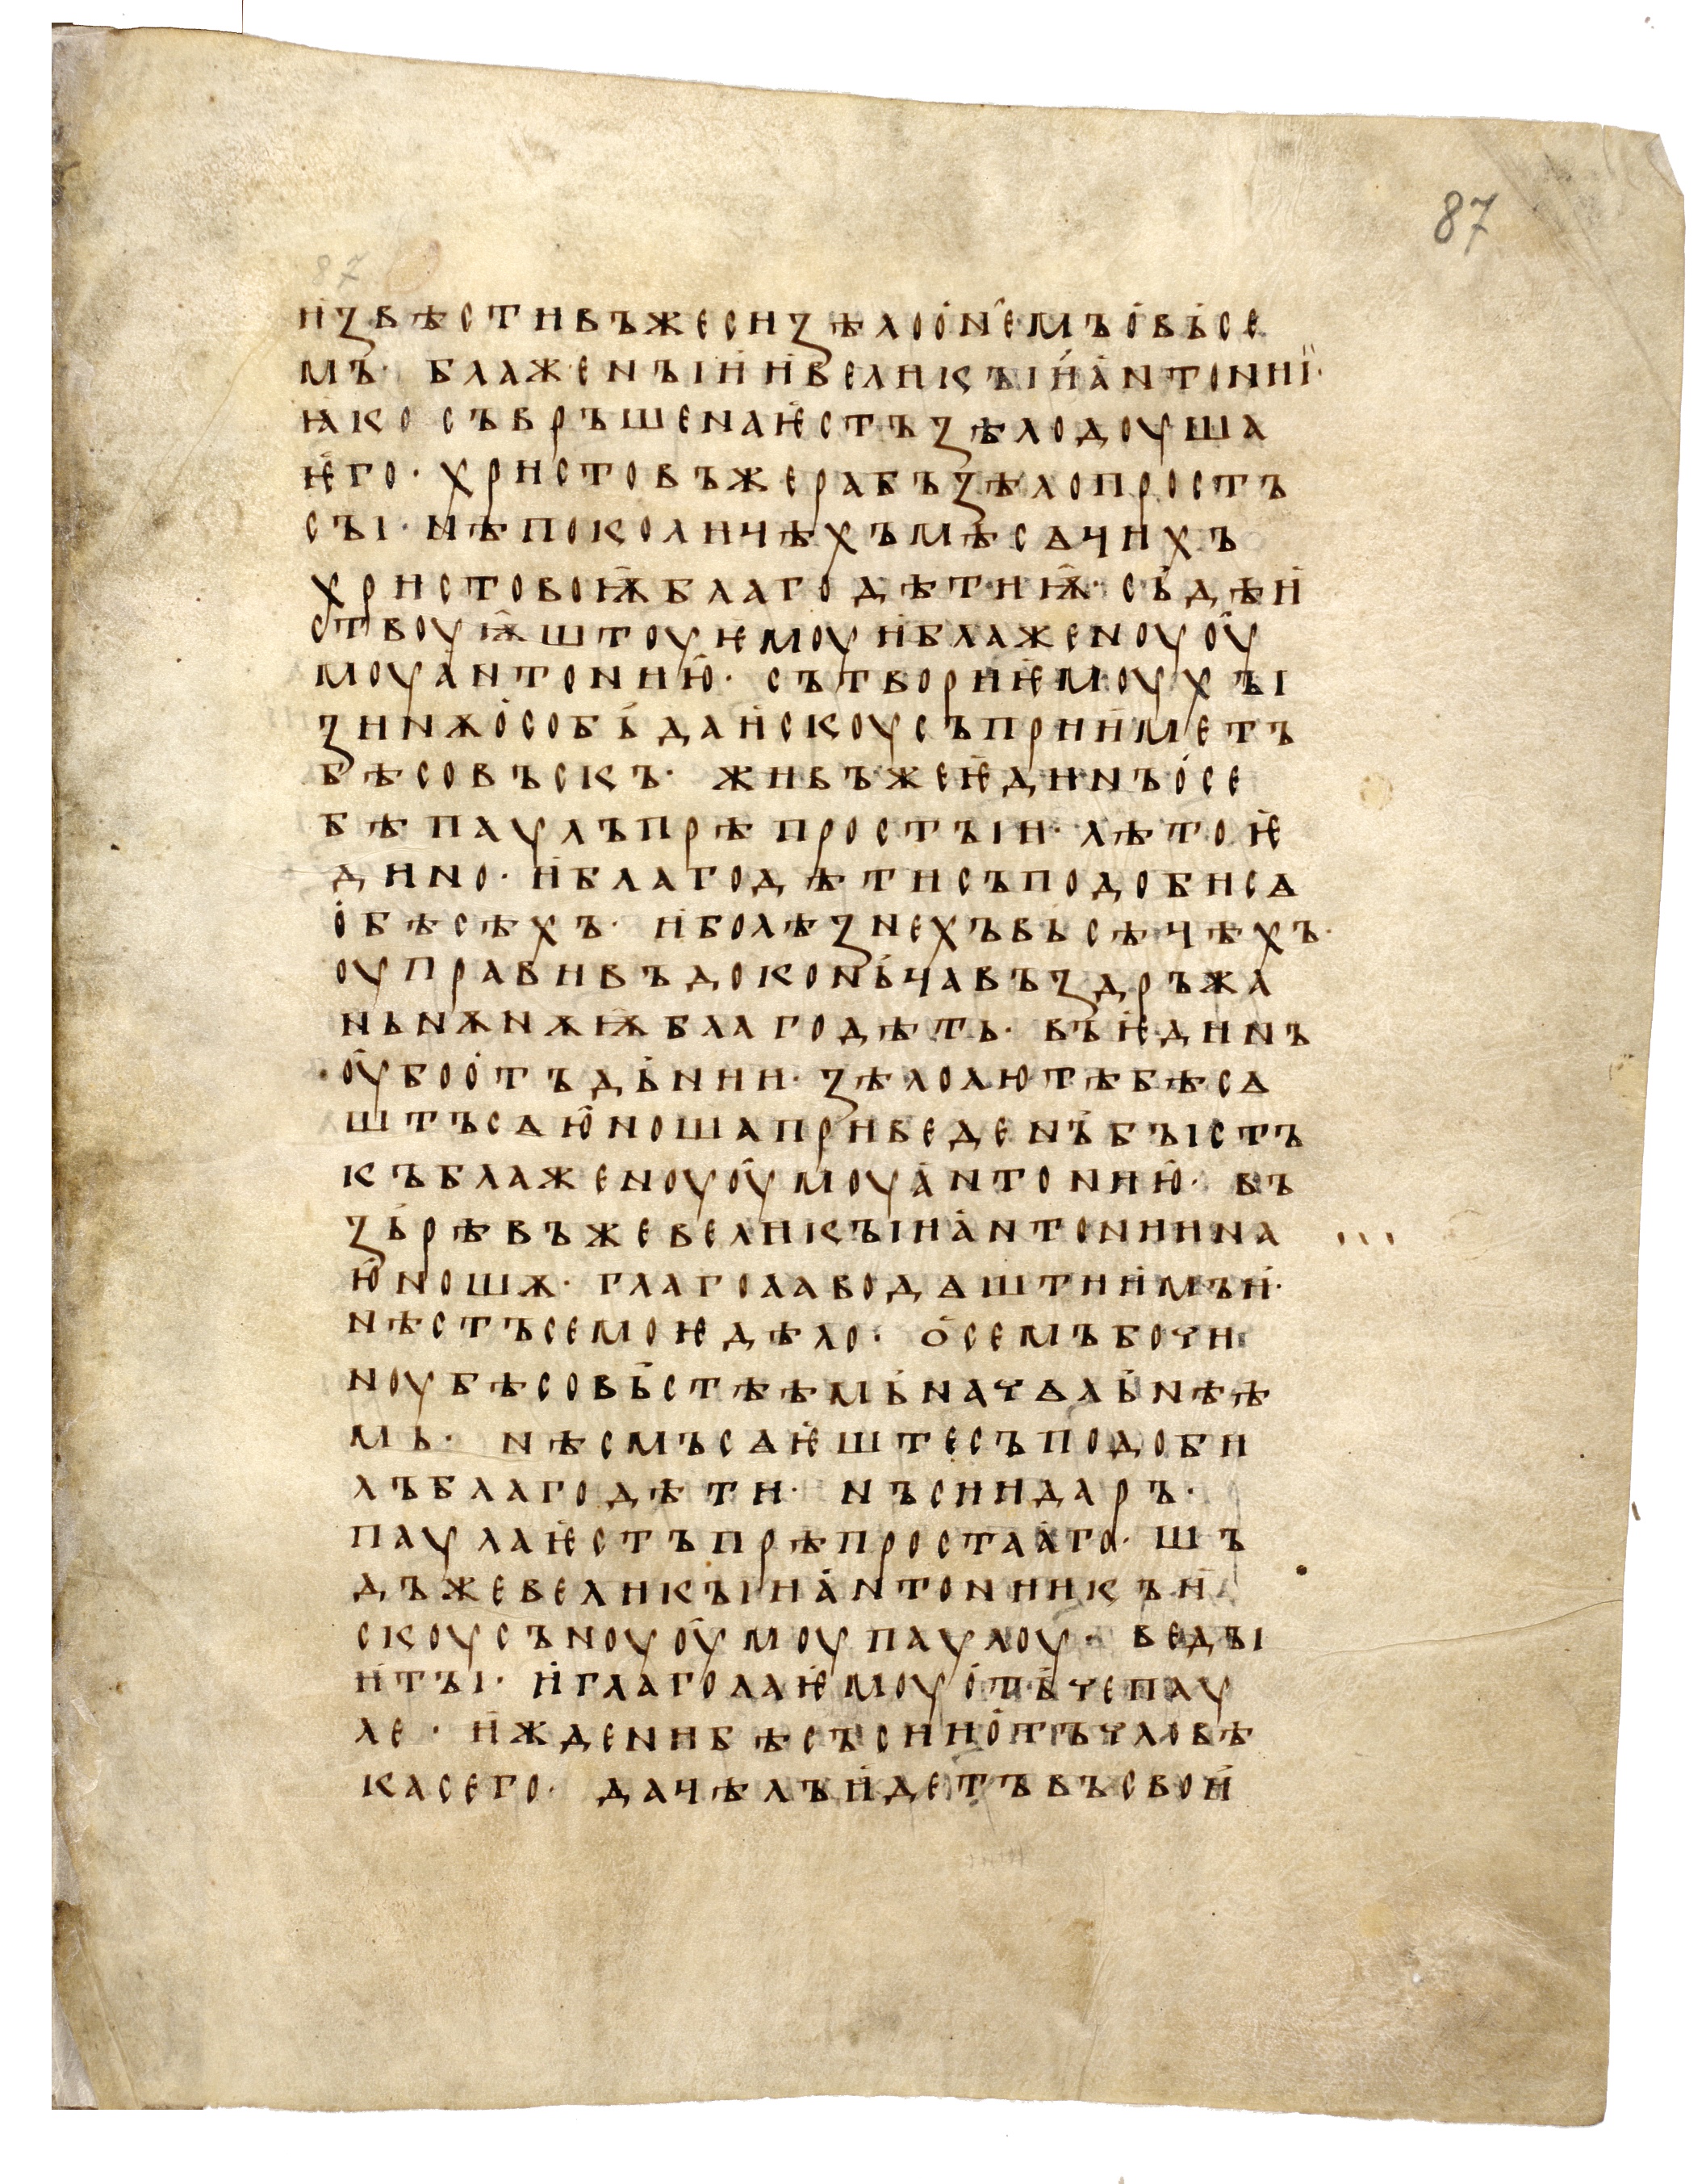 87
87
и҅звѣстивъжесизѣлоо҅н҅емъо҅вь҆се
мъ· блаженъіи҅и҅великъіи҅а҅нтонии·
ꙗ҅косъврьшенаѥ҅стъзѣлодоуша
ѥ҅го· христовъжерабъзѣлопростъ
съі· нѣпоколицѣхъмѣсѧцихъ
христовоѭ҅благодѣтиѭ҅· съ҅дѣи҅
ствоуѭ҅штоуѥмоуи҅блаженоуоу҅
моуа҅нтонию҅· сътвориѥ҅моухъі
зинѫо҅собь҆даи҅скоусъприи҅метъ
бѣсовъскъ· живъжеѥ҅динъо҅се
бѣпаулъпрѣпростъіи· лѣтоѥ҅
дино· и҅благодѣтисъподобисѧ
о҅бѣсѣхъ· и҅болѣзнехъвь҆сѣцѣхъ·
оуправивъдоконь҆цавъздръжа
ньнѫнѫѭ҅благодѣть· въѥ҅динъ
оу҅боо҅тъдь҆нии· зѣлолютѣбѣсѧ
штъсѧю҅ношаприведенъ҅бъістъ
къблаженоуоу҅моуа҅нтонию҅· въ
зь҆рѣвъжевеликъіиа҅нтонииина
ю҅ношѫ· глаголаводѧштиимъи҅·
нѣстъсемоѥдѣло· о҅семъбочи
ноубѣсовь҆стѣѣмь҆начѧль҆нѣѣ
мь· нѣсмъсѧѥ҅штесъподоби
лъблагодѣти· нъсиидаръ·
паулаѥ҅стъпрѣпростааго· шъ
дъжевеликъіиа҅нтониикъи҅
скоусъноуоу҅моупаулоу· ведъі
и҅тъі· и҅глаголаѥ҅моуо҅ть҆чепау
ле· и҅жденибѣсъсиио҅тъчловѣ
касего· дацѣлъи҅детъвъсвои҅